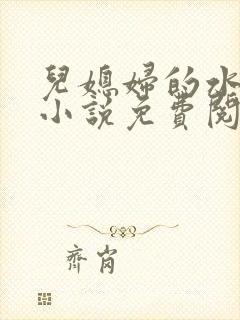 兒媳婦的水
小說免費閱
齊肖